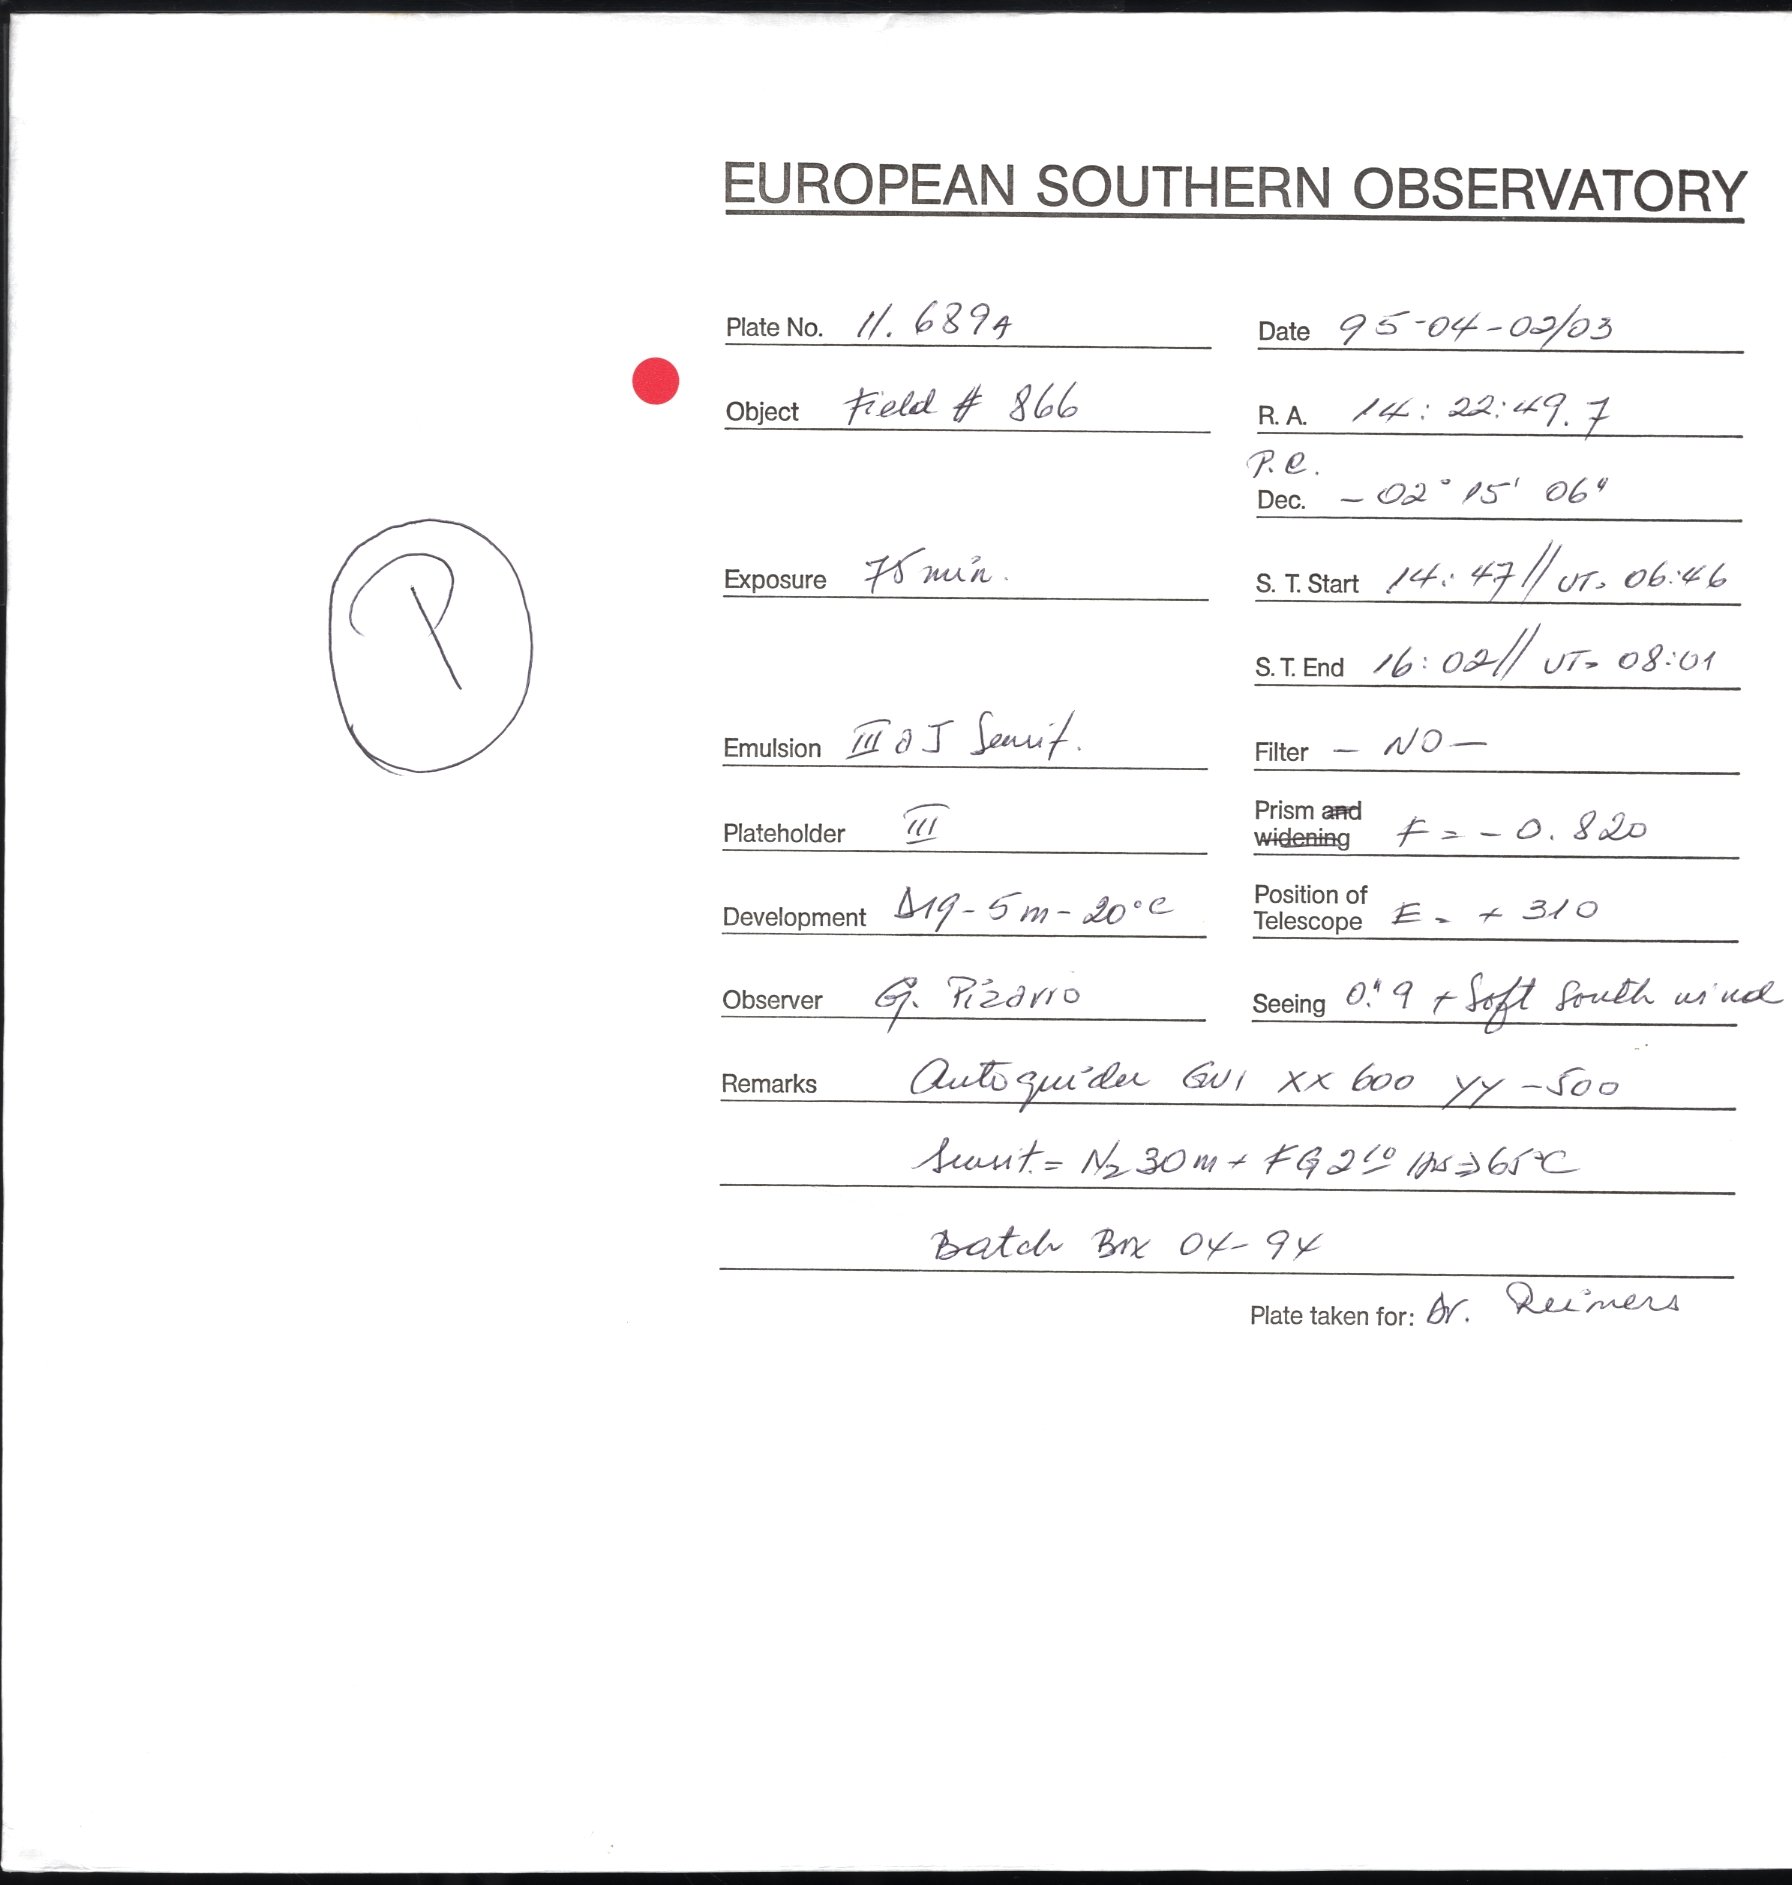 EUROPEAN SOUTHERN OBSERVATORY
Plate No. 11.689A
Date 95-04-02/03
Object Field # 866
R. A. 14: 22:49.7
P.C.
Dec. - 02° 15' 06"
P
Exposure 75 min.
S. T. Start 14: 47// UT= 06:46
S. T. End 16: 02// UT= 08:01
Emulsion III a J Sensit.
Filter - NO -
Plateholder III
Prism and widening F = - 0.820
Development D19 - 5m - 20°C
Position of Telescope E = + 310
Observer G. Pizarro
Seeing 0."9 + Soft South wind
Remarks Autoguider GW1 XX 600 YY -500
Sensit. = N2 30m + FG 2 hrs => 65°C
Batch Box 04-94
Plate taken for: Dr. Reimers